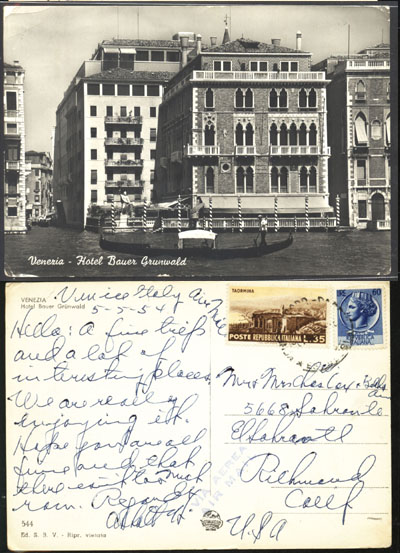 Venezia - Hotel Bauer Grunwald
VENEZIA
Hotel Bauer Grünwald
Venice Italy Air Mail
5-5-54
Hello: a fine trip
and a lot of
interesting places.
We are really
enjoying it.
Hope you are all
fine and that
there isn't too much
rain. Regards
TAORMINA
POSTE REPUBBLICA ITALIANA L. 35
60
Mr & Mrs Chas
5668
Richmond
Calif
U.S.A
VIA AEREA
AIR MAIL
544
Ed. S. 9. V. - Ripr. vietata